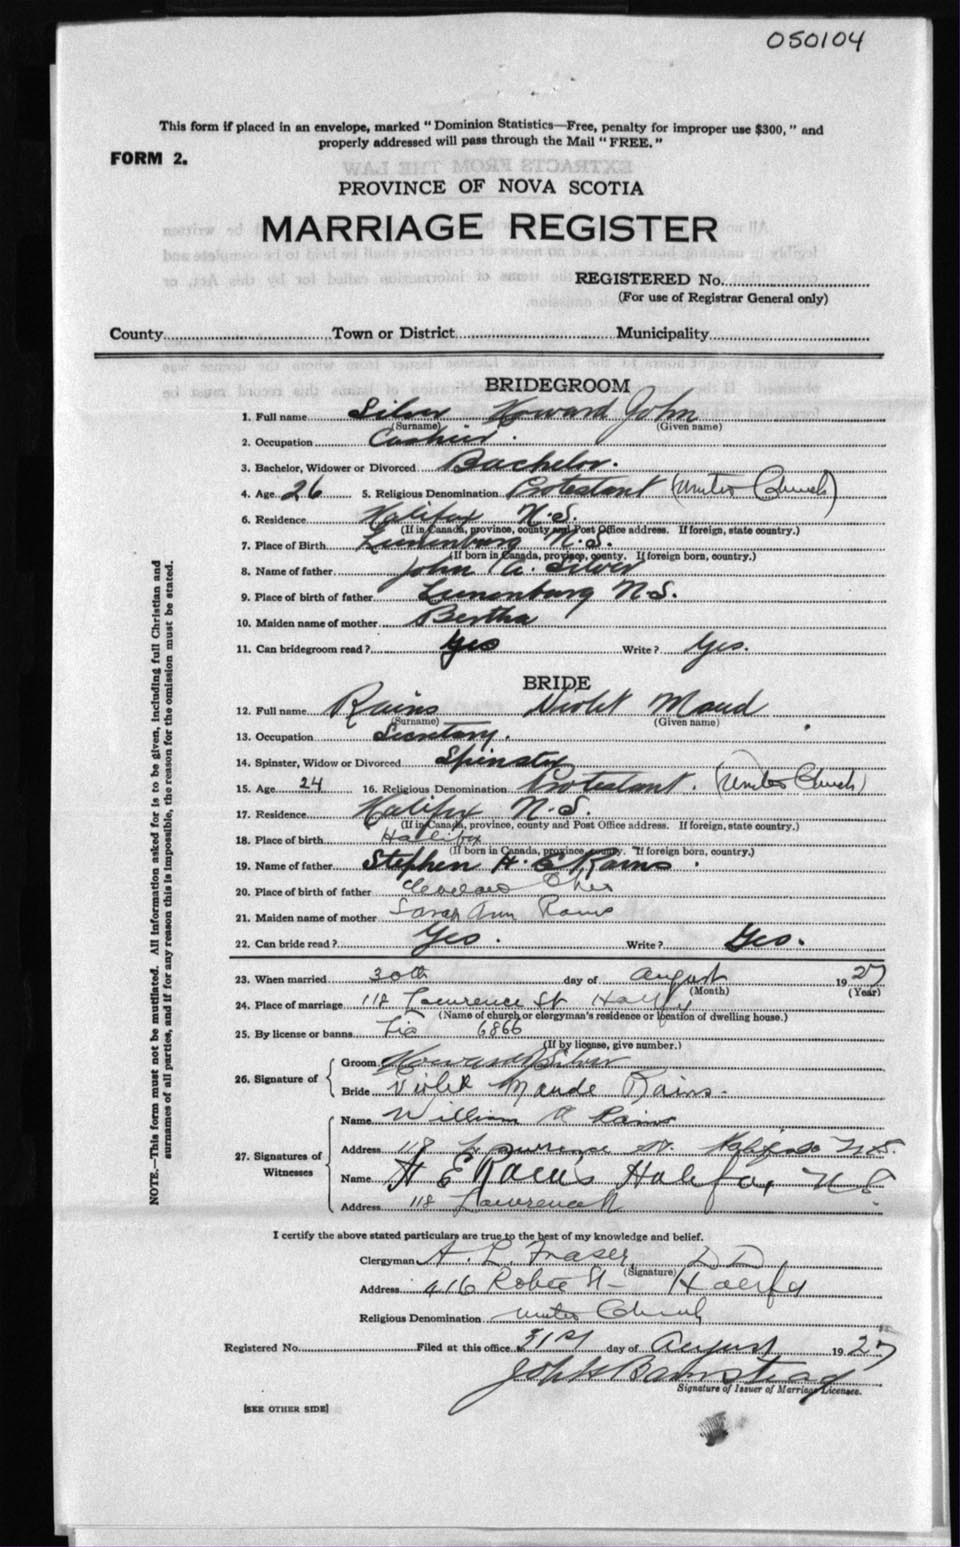 050104
This form if placed in an envelope, marked "Dominion Statistics—Free, penalty for improper use $300," and
properly addressed will pass through the Mail "FREE."
FORM 2.
PROVINCE OF NOVA SCOTIA
MARRIAGE REGISTER
REGISTERED No.
(For use of Registrar General only)
County Town or District Municipality
BRIDEGROOM
1. Full name Silver Howard John
(Surname) (Given name)
2. Occupation Cashier.
3. Bachelor, Widower or Divorced Bachelor.
4. Age 26 5. Religious Denomination Protestant (United Church)
6. Residence Halifax N.S.
(If in Canada, province, county and Post Office address. If foreign, state country.)
7. Place of Birth Lunenburg N.S.
(If born in Canada, province, county. If foreign born, country.)
8. Name of father John A. Silver
9. Place of birth of father Lunenburg N.S.
10. Maiden name of mother Bertha
11. Can bridegroom read? Yes Write? Yes.
BRIDE
12. Full name Rains Violet Maud
(Surname) (Given name)
13. Occupation Secretary.
14. Spinster, Widow or Divorced Spinster
15. Age 24 16. Religious Denomination Protestant. (United Church)
17. Residence Halifax N.S.
(If in Canada, province, county and Post Office address. If foreign, state country.)
18. Place of birth Halifax
(If born in Canada, province, county. If foreign born, country.)
19. Name of father Stephen H. E Rains.
20. Place of birth of father
21. Maiden name of mother Sarah Ann Rains
22. Can bride read? Yes. Write? Yes.
23. When married 30th day of August 1927
(Month) (Year)
24. Place of marriage 118 Lawrence St Halifax
(Name of church or clergyman's residence or location of dwelling house.)
25. By license or banns Lic 6866
(If by license, give number.)
26. Signature of
Groom Howard J Silver
Bride Violet Maude Rains.
27. Signatures of Witnesses
Name William Rains
Address 118 Lawrence St. Halifax N.S.
Name H E Rains Halifax N S.
Address 118 Lawrence St
I certify the above stated particulars are true to the best of my knowledge and belief.
Clergyman A. L. Fraser, D D
(Signature)
Address 416 Robie St- Halifax
Religious Denomination United Church
Registered No. Filed at this office 31st day of August 1927
Signature of Issuer of Marriage Licenses.
[SEE OTHER SIDE]
NOTE.—This form must not be mutilated. All information asked for is to be given, including full Christian and
surnames of all parties, and if for any reason this is impossible, the reason for the omission must be stated.